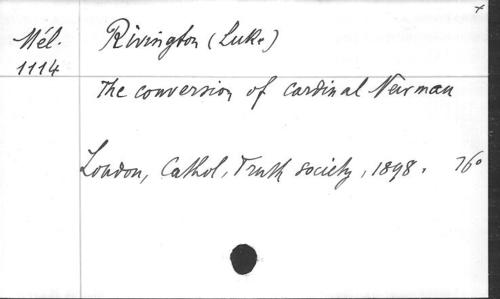 Mél. Rivington (Luke)
1114
The conversion of cardinal Newman
London, Cathol. Truth society, 1898. 16°